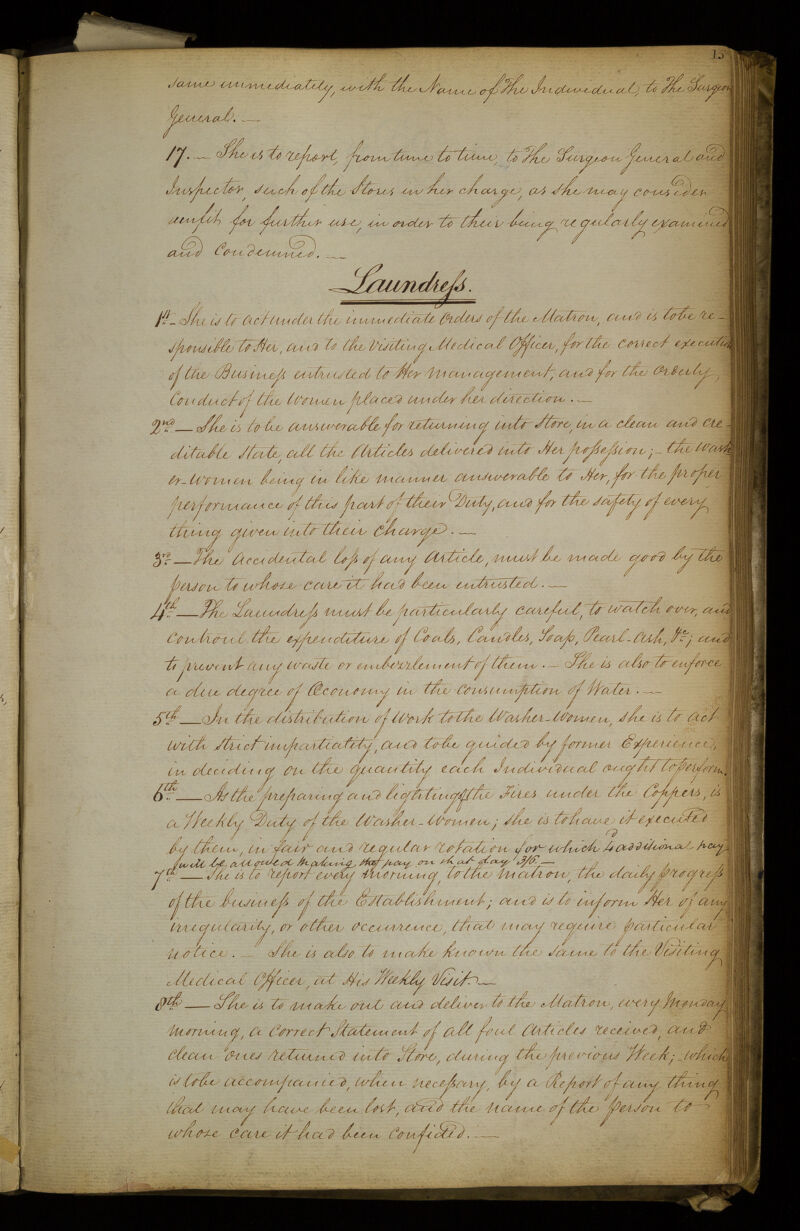 15
same immediately, with the Name of The Individual, to The Surgeon
General. —
17. — She is to report, from time to time, to The Surgeon General and
Inspector, such of the Stores in her charge, as she may consider
unfit for further use, in order to their being regularly examined
and Condemned. —
Laundress.
1st — She is to act under the immediate Orders of the Matron, and is to be re-
sponsible to Her, and to the Visiting Medical Officer, for the correct execution
of the Business entrusted to Her management, and for the Orderly
Conduct of the Women placed under her direction. —
2nd — She is to be answerable for returning into Store, in a clean and cre-
ditable State, all the Articles delivered into Her possession; — the Wash-
er-Women being in like manner answerable to Her, for the proper
performance of this part of their Duty, and for the safety of every
thing given into their Charge. —
3rd — The Accidental loss of any Article, must be made good by the
person to whose care it had been entrusted. —
4th — The Laundress must be particularly careful, to watch over, and
Controul the expenditure of Coals, Candles, Soap, Pearl-Ash, &c; and
to prevent any waste or embezzlement of them. — She is also to enforce
a due degree of Œconomy in the consumption of Water. —
5th — In the distribution of Work to the Washer-Women, she is to act
with strict impartiality, and to be guided by former Experience,
in deciding on the quantity each Individual ought to perform.
6th — As the preparing and lighting of the Fires under the Coppers, is
a Weekly Duty of the Washer-Women; she is to have it executed
by them, in fair and regular rotation for which additional pay
will be allowed making the pay on that day 3/6 —
7th — She is to report every morning, to the Matron, the daily progress
of the business of the Establishment; and is to inform Her of any
irregularity, or other occurrence, that may require particular
notice. — She is also to make known the same to the Visiting
Medical Officer, at His Weekly Visit. —
8th — She is to make out and deliver to the Matron, every Monday
morning, a Correct Statement of all foul Articles received, and
clean ones returned into Store, during the previous Week; — which
is to be accompanied, when necessary, by a Report of any thing
that may have been lost, and the name of the person to
whose care it had been Confided. —